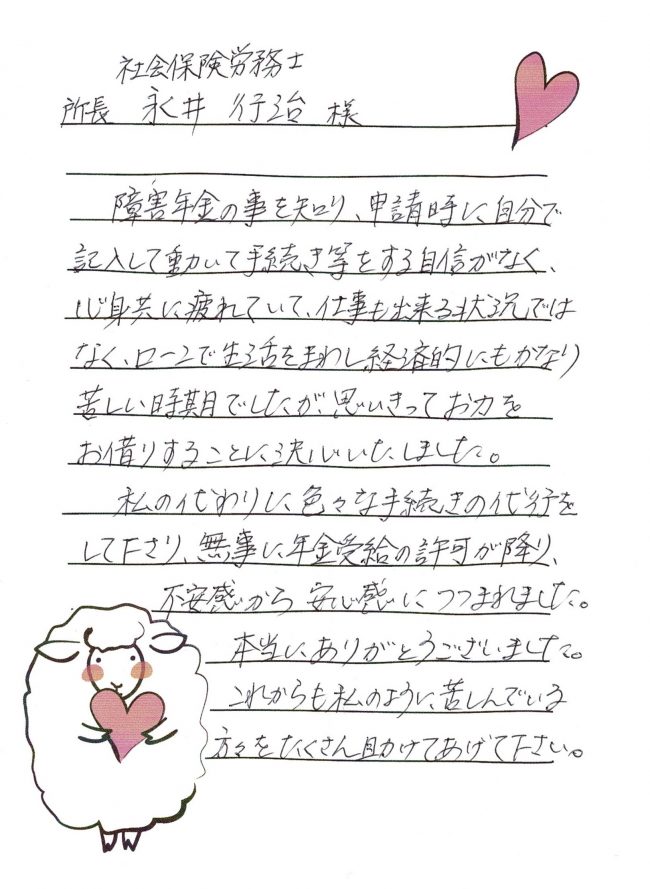 社会保険労務士
所長 永井 行治 様
障害年金の事を知り、申請時に自分で
記入して動いて手続き等をする自信がなく、
心身共に疲れていて、仕事も出来る状況では
なく、ローンで生活をまわし経済的にもかなり
苦しい時期でしたが思いきってお力を
お借りすることに決心いたしました。
私の代わりに色々な手続きの代行を
して下さり、無事に年金受給の許可が降り、
不安感から安心感につつまれました。
本当にありがとうございました。
これからも私のように苦しんでいる
方々をたくさん助けてあげて下さい。